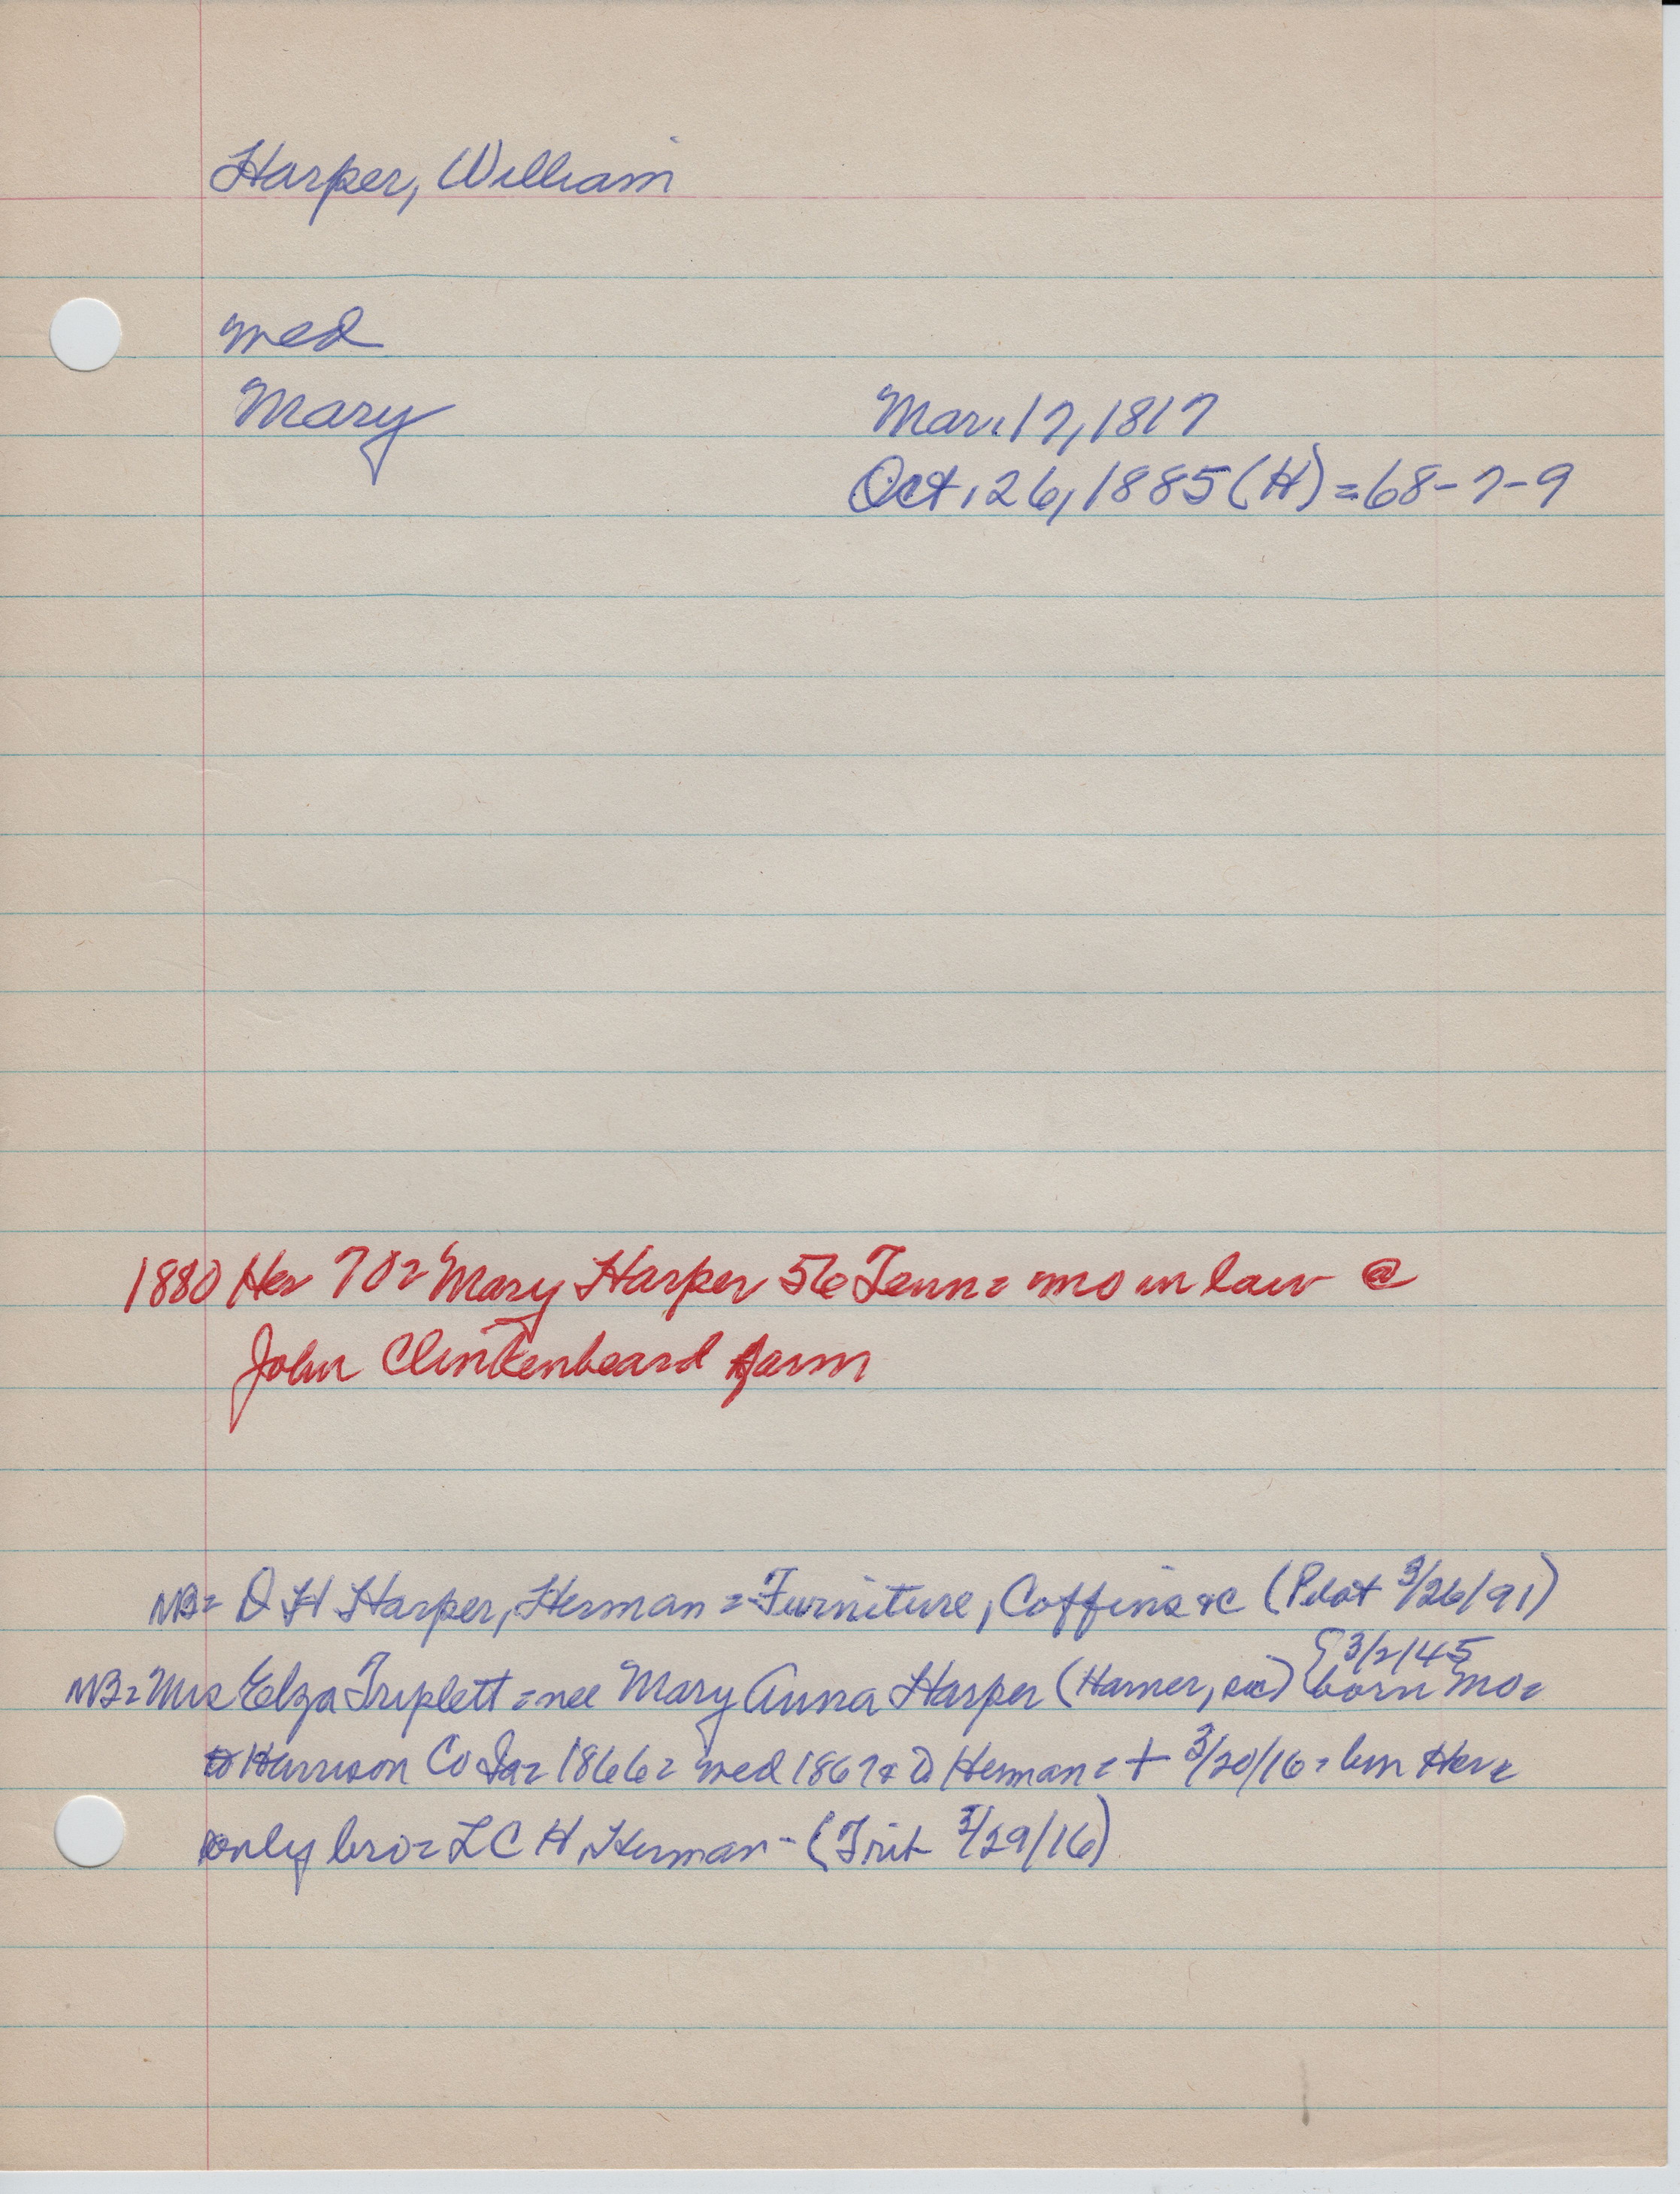 Harper, William
med
Mary Mar. 17, 1817
Oct. 26, 1885 (H) = 68-7-9
1880 Her 70 = Mary Harper 56 Tenn = mo in law @
John Clinkenbeard farm
NB = D H Harper, Herman = Furniture, Coffins &c (Pilot 3/26/91)
3/2/45
NB = Mrs Elza Triplett = nee Mary Anna Harper (Harner, sic) born Mo =
Harrison Co Ia = 1866 = med 1867 @ Herman = + 3/20/16 = bur Her =
only bro = L C H, Herman - (Trib 3/29/16)